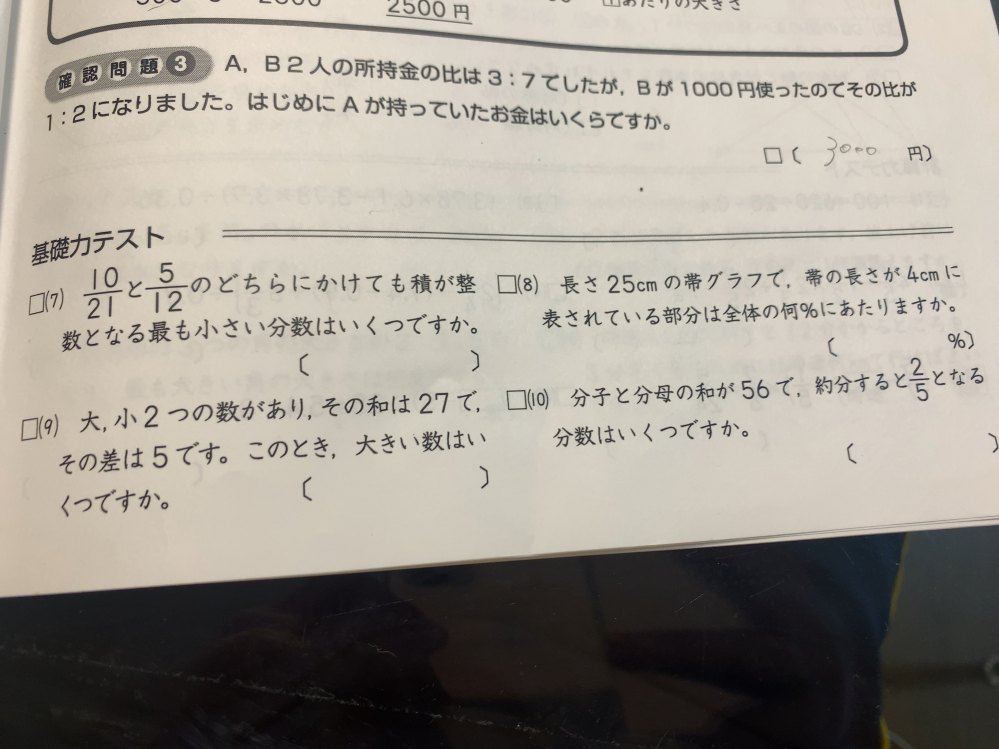 2500円
あたりの大きさ
確認問題3 A，B2人の所持金の比は3：7でしたが，Bが1000円使ったのでその比が
1：2になりました。はじめにAが持っていたお金はいくらですか。
□〔 3000 円〕
基礎力テスト
□(7) 10/21と5/12のどちらにかけても積が整
数となる最も小さい分数はいくつですか。
〔 〕
□(8) 長さ25cmの帯グラフで，帯の長さが4cmに
表されている部分は全体の何％にあたりますか。
〔 ％〕
□(9) 大，小2つの数があり，その和は27で，
その差は5です。このとき，大きい数はい
くつですか。 〔 〕
□(10) 分子と分母の和が56で，約分すると2/5となる
分数はいくつですか。
〔 〕